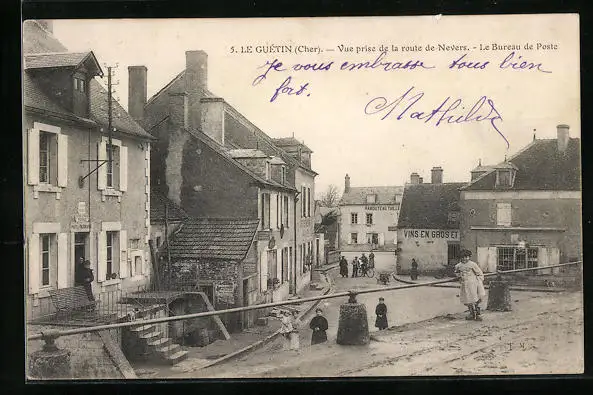 5. LE GUÉTIN (Cher). — Vue prise de la route de Nevers. - Le Bureau de Poste
Je vous embrasse tous bien
fort.
Mathilde
VINS EN
GROS ET